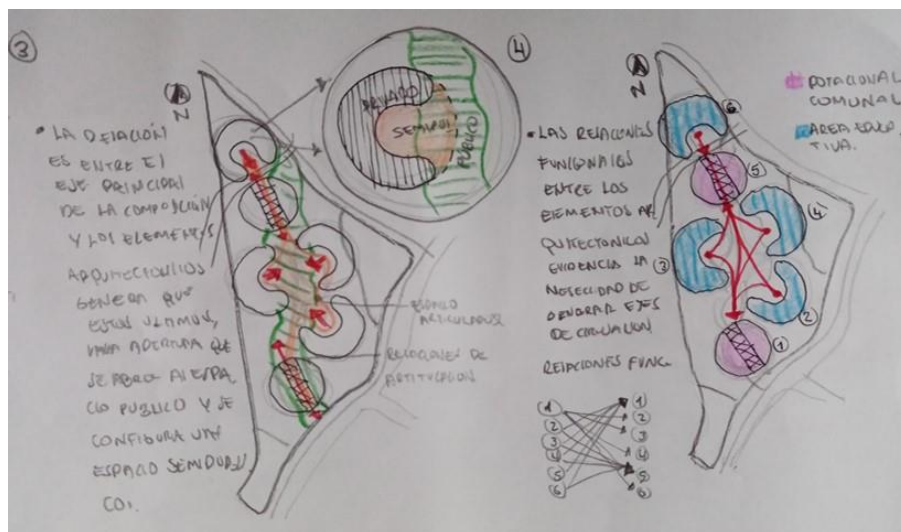 3
N
• LA RELACIÓN
ES ENTRE El
EJE PRINCIPAL
DE LA COMPOSICIÓN
Y LOS ELEMENTOS
ARQUITECTONICOS
GENERA QUE
ESTOS
APERTURA QUE
SE ABRO Al ESPA
CIO PUBLICO Y SE
CONFIGURA UN
ESPACIO
CO.
PRIVADO
SEMIPUB
PÚBLICO
ESPACIO
ARTICULADOR
RELACIONES DE
ARTICULACION
4
N
• LAS RELACIONES
FUNCIONALES
ENTRE LOS
ELEMENTOS AR
QUITECTONICOS
EVIDENCIA LA
NECECIDAD DE
GENERAR EJES
DE CIRCULACION
RELACIONES FUNC.
1
2
3
4
5
6
1
2
3
4
5
6
DOTACIONAL
COMUNAL
AREA EDUCA
TIVA.
6
5
4
3
2
1